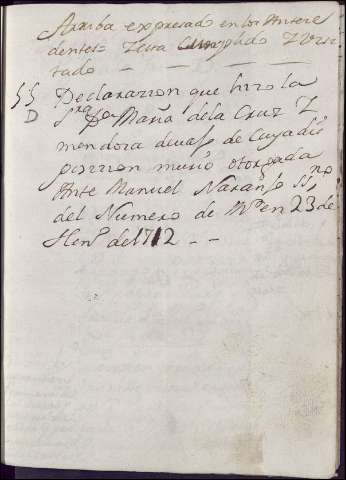 Arriba expresado en los Antece
dentes: Letra Cumplado Y Visi
tado — — — —
55 Declarazion que hizo la
D Sra Da Maria dela Cruz Z
mendoza devajo de Cuya dis
posizion murio otorgada
Ante Manuel Naranjo SSno
del Numero de Md en 23 de
Henº de 1712 - -